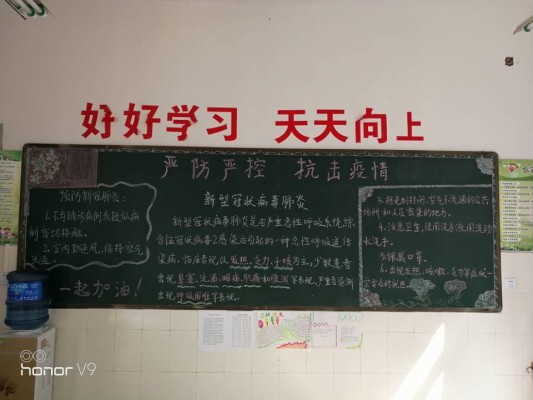 好好学习 天天向上
严防严控 抗击疫情
预防新冠肺炎:
1.不与确诊病例或疑似病
例密切接触。
2.室内勤通风,保持空气
流通。
一起加油!
新型冠状病毒肺炎
新型冠状病毒肺炎是由严重急性呼吸系统综
合征冠状病毒2感染而引起的一种急性呼吸道传
染病。临床表现以发热、乏力、干咳为主,少数患者
出现鼻塞、流涕、咽痛、肌痛和腹泻等表现,严重者逐渐
出现呼吸困难等表现。
3.避免到封闭、空气不流通的公共
场所和人员密集的地方。
4.注意卫生,使用洗手液用流动
水洗手。
5.佩戴口罩。
6.出现发热、咳嗽、乏力等症状一
定要及时就医。
honor V9